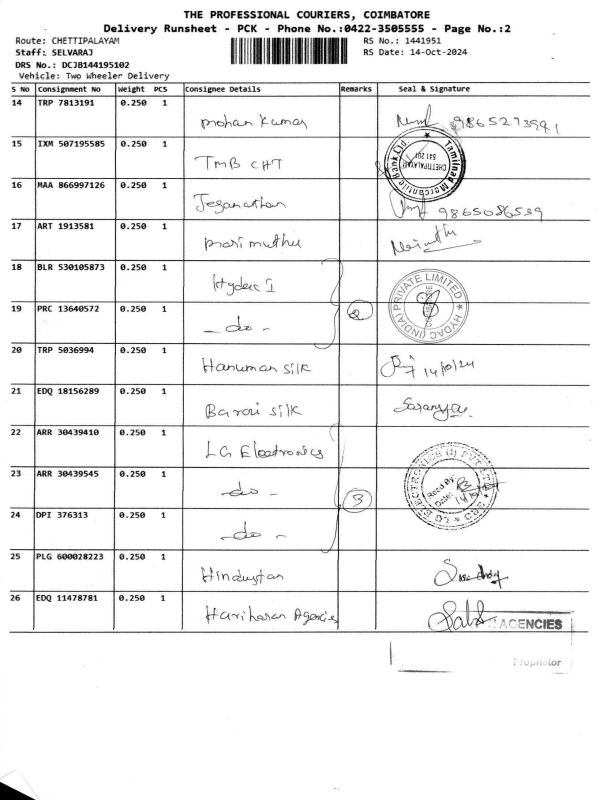 THE PROFESSIONAL COURIERS, COIMBATORE
Delivery Runsheet - PCK - Phone No.:0422-3505555 - Page No.:2
Route: CHETTIPALAYAM RS No.: 1441951
Staff: SELVARAJ RS Date: 14-Oct-2024
DRS No.: DCJB144195102
Vehicle: Two Wheeler Delivery
S No Consignment No Weight PCS Consignee Details Remarks Seal & Signature
14 TRP 7813191 0.250 1 mohan kumar 9865273991
15 IXM 507195585 0.250 1 TMB CHT Tamilnad Mercantile Bank Ltd CHETTIPALAYAM 641 201
16 MAA 866997126 0.250 1 Jeganathan 9865086539
17 ART 1913581 0.250 1 mari muthu
18 BLR 530105873 0.250 1 Hydac I HYDAC (INDIA) PRIVATE LIMITED
19 PRC 13640572 0.250 1 - do - 2
20 TRP 5036994 0.250 1 Hanuman silk
21 EDQ 18156289 0.250 1 silk Saranya
22 ARR 30439410 0.250 1 LG Electronics
23 ARR 30439545 0.250 1 - do - 3 LG ELECTRONICS (I) PVT LTD Recd By: Date:
24 DPI 376313 0.250 1 - do -
25 PLG 600028223 0.250 1 Hindustan
26 EDQ 11478781 0.250 1 Hariharan Agencies AGENCIES
Proprietor